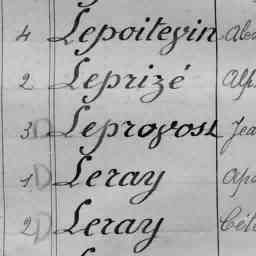 4 Lepoitevin Alex
2 Leprizé Alph
3 D Leprovost Jea
1 D Leray
2 D Leray Céle